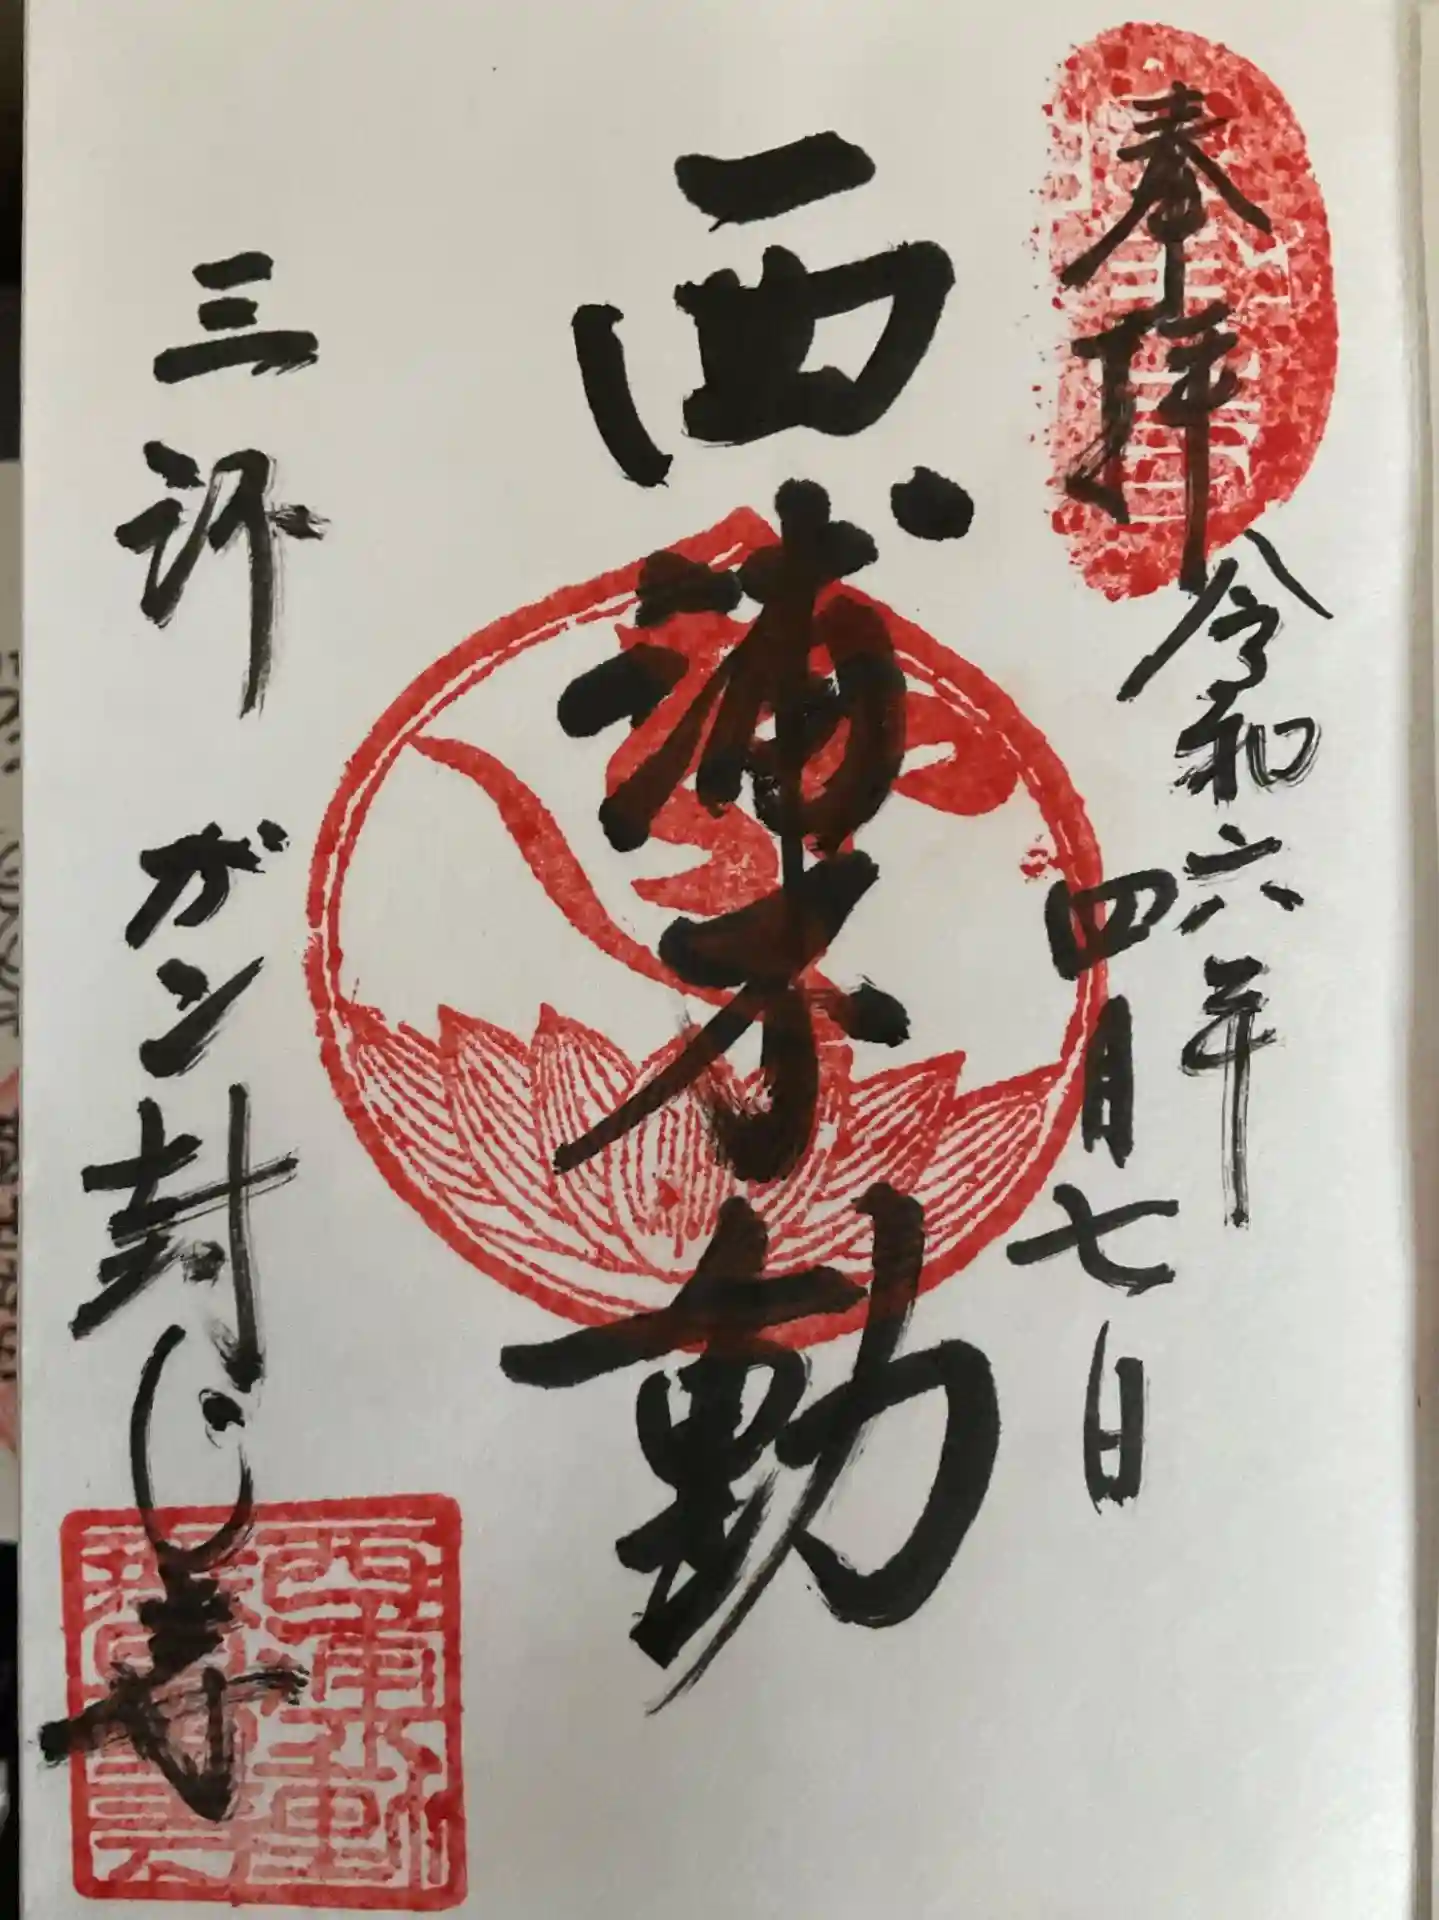 奉拝
令和六年
四月七日
西浦不動
三河 ガン封じ寺